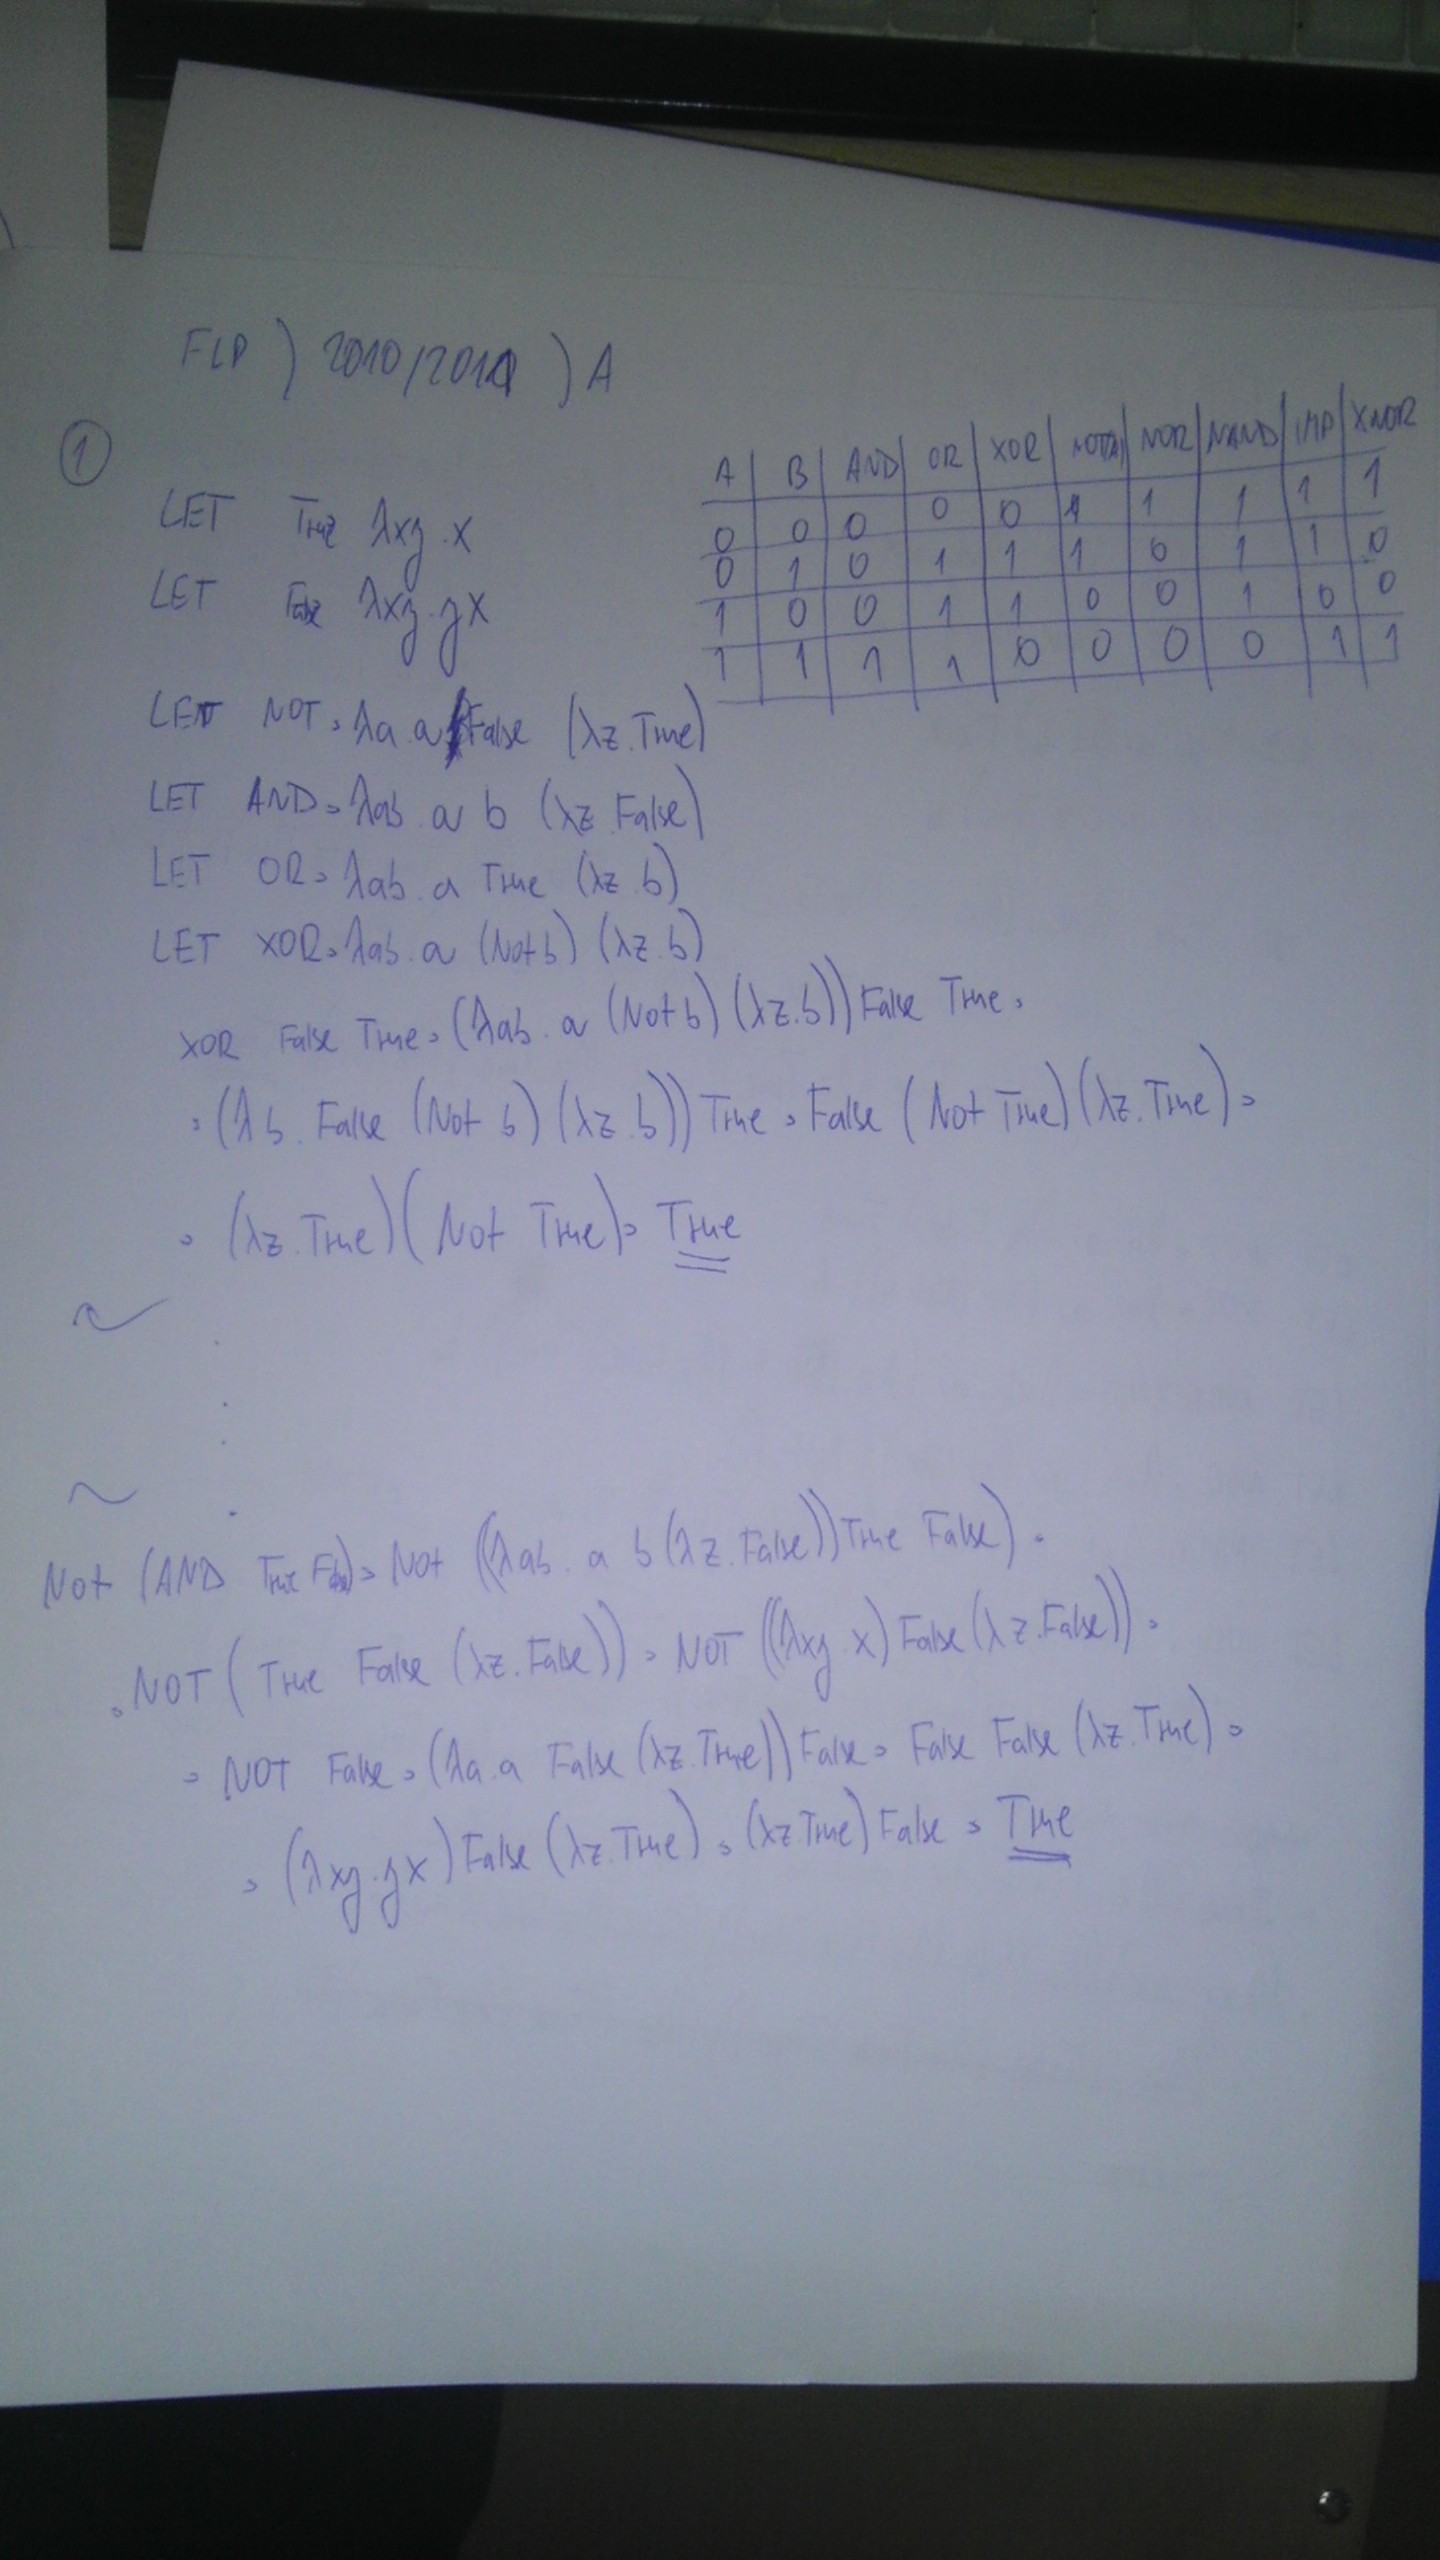 FLP ) 2010/2011 ) A
1
A | B | AND | OR | XOR | NOT(A) | NOR | NAND | IMP | XNOR
0 | 0 | 0 | 0 | 0 | 1 | 1 | 1 | 1 | 1
0 | 1 | 0 | 1 | 1 | 1 | 0 | 1 | 1 | 0
1 | 0 | 0 | 1 | 1 | 0 | 0 | 1 | 0 | 0
1 | 1 | 1 | 1 | 0 | 0 | 0 | 0 | 1 | 1
LET True λxy.x
LET False λxy.yx
LET NOT = λa.a False (λz.True)
LET AND = λab.a b (λz.False)
LET OR = λab.a True (λz.b)
LET XOR = λab.a (Not b) (λz.b)
XOR False True = (λab.a (Not b) (λz.b)) False True =
= (λb.False (Not b) (λz.b)) True = False (Not True) (λz.True) =
= (λz.True) (Not True) = True
Not (AND True False) = Not ((λab.a b (λz.False)) True False) =
= NOT (True False (λz.False)) = NOT ((λxy.x) False (λz.False)) =
= NOT False = (λa.a False (λz.True)) False = False False (λz.True) =
= (λxy.yx) False (λz.True) = (λz.True) False = True